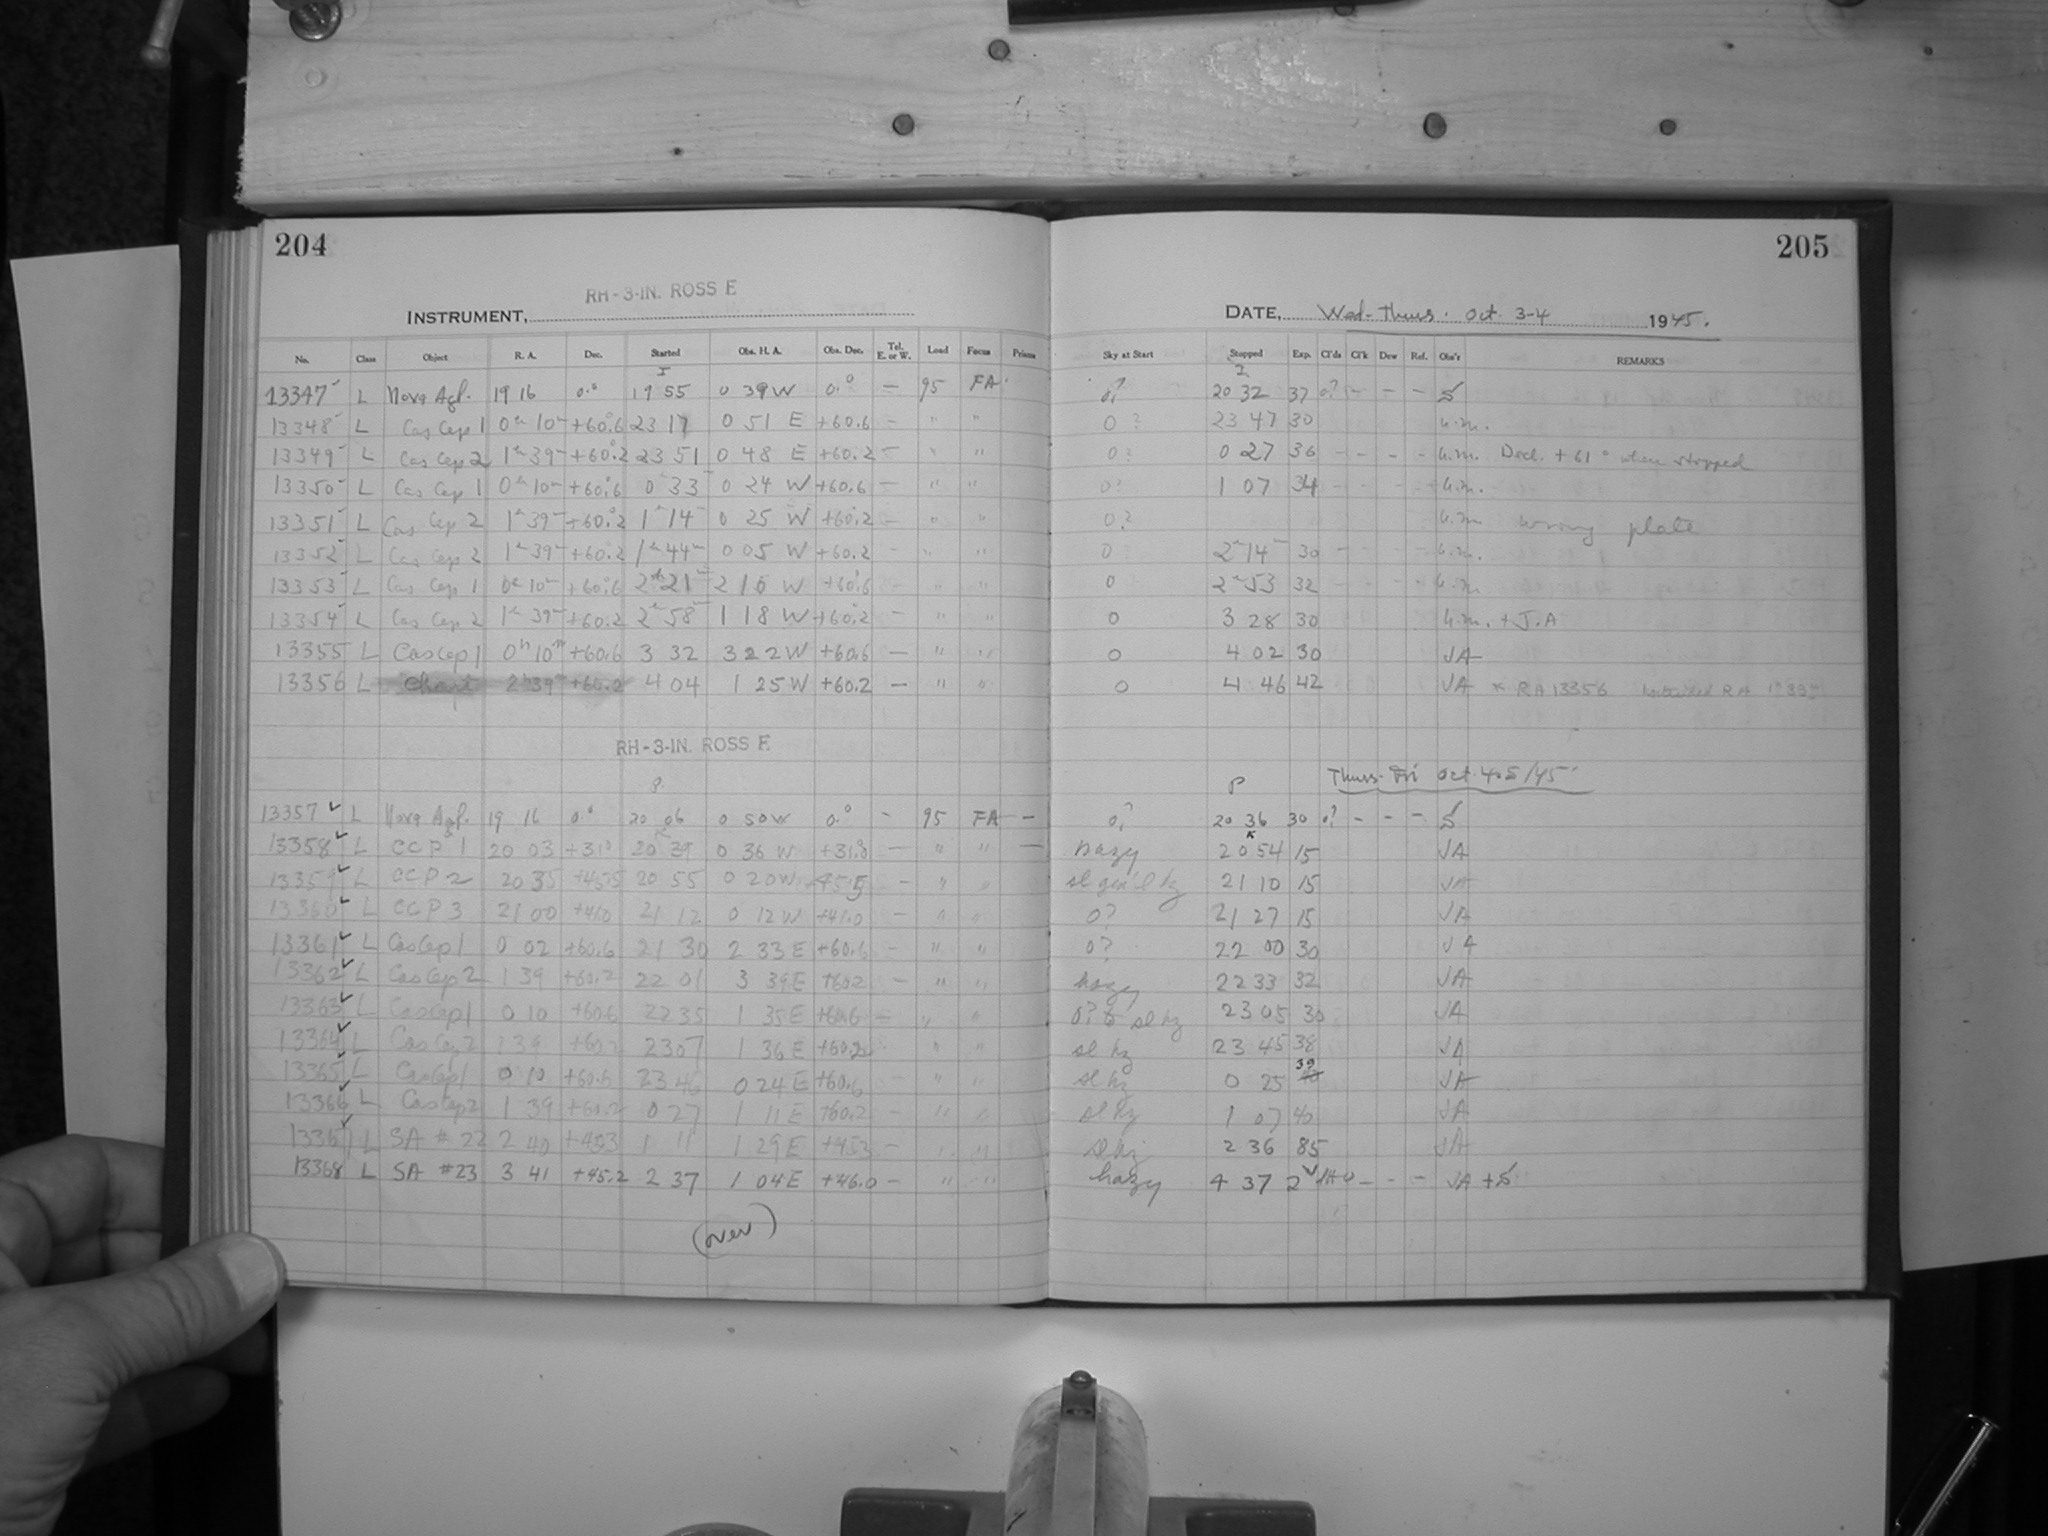 204
205
RH-3-IN. ROSS E
INSTRUMENT,
DATE, Wed-Thurs. Oct. 3-4 1945.
No. Class Object R. A. Dec. Started Obs. H. A. Obs. Dec. Tel. E. or W. Load Focus Prisms Sky at Start Stopped Exp. Cl'ds Cl'k Dew Ref. Obs'r REMARKS
13347 L Nova Aql. 19 16 0.° 19 55 0 39 W 0.° — 95 FA 0? 20 32 37 0? - - -
13348 L Cas Cep 1 0h 10m +60.6 23 17 0 51 E +60.6 - " " 0? 23 47 30 h.m.
13349 L Cas Cep 2 1h 39m +60.2 23 51 0 48 E +60.2 - " " 0? 0 27 36 - - - - h.m. Decl. +61° when stopped
13350 L Cas Cep 1 0h 10m +60.6 0 33 0 24 W +60.6 - " " 0? 1 07 34 - - - - h.m.
13351 L Cas Cep 2 1h 39m +60.2 1h 14m 0 25 W +60.2 - " " 0? h.m wrong plate
13352 L Cas Cep 2 1h 39m +60.2 1h 44m 0 05 W +60.2 - " " 0 2h 14m 30 h.m.
13353 L Cas Cep 1 0h 10m +60.6 2h 21m 2 10 W +60.6 - " " 0 2h 53 32 h.m.
13354 L Cas Cep 2 1h 39m +60.2 2h 58m 1 18 W +60.2 - " " 0 3 28 30 h.m. + J.A
13355 L CasCep 1 0h 10m +60.6 3 32 3 22 W +60.6 — " " 0 4 02 30 JA
13356 L 2h 39m +60.2 4 04 1 25 W +60.2 — " " 0 4 46 42 JA * RA 13356 RA
RH-3-IN. ROSS E
Thurs-Fri Oct. 4-5/45
13357 L Nova Aql. 19 16 0.° 20 06 0 50 W 0.° - 95 FA — 0? 20 36 30 0? - - -
13358 L CCP 1 20 03 +31.8 20 39 0 36 W +31.8 — " " — hazy 20 54 15 JA
13359 L CCP 2 20 35 +45.5 20 55 0 20 W +45.5 - " " 21 10 15 JA
13360 L CCP 3 21 00 +41.0 21 12 0 12 W +41.0 - " " 0? 21 27 15 JA
13361 L CasCep 1 0 02 +60.6 21 30 2 33 E +60.6 - " " 0? 22 00 30 JA
13362 L CasCep 2 1 39 +60.2 22 01 3 39 E +60.2 — " " hazy 22 33 32 JA
13363 L CasCep 1 0 10 +60.6 22 35 1 35 E +60.6 - " " 0? to sl hz 23 05 30 JA
13364 L CasCep 2 1 39 +60.2 23 07 1 36 E +60.2 " " sl hz 23 45 38 JA
13365 L CasCep 1 0 10 +60.6 23 46 0 24 E +60.6 - " " sl hz 0 25 39 JA
13366 L CasCep 2 1 39 +60.2 0 27 1 11 E +60.2 - " " sl hz 1 07 40 JA
13367 L SA # 22 2 40 +45.3 1 11 1 29 E +45.3 - " " sl hz 2 36 85 JA
13368 L SA #23 3 41 +45.2 2 37 1 04 E +46.0 - " " hazy 4 37 2 - - - JA +
(over)